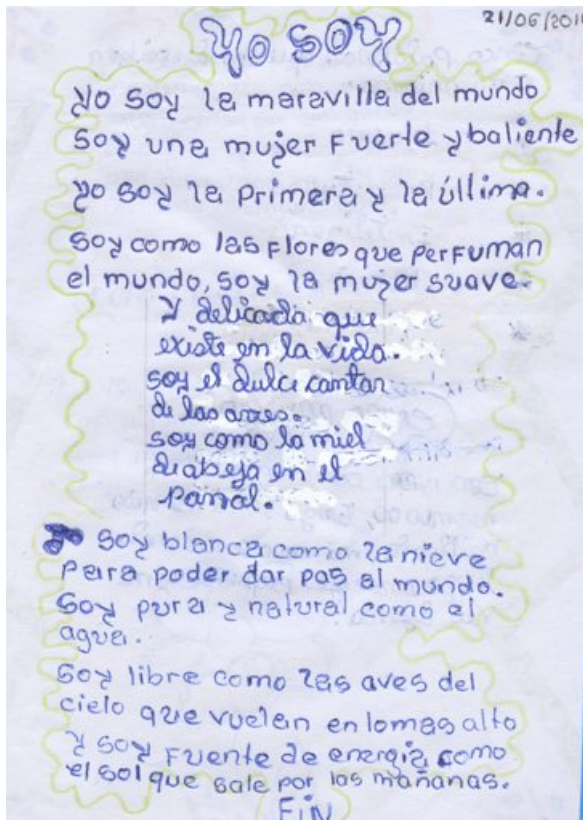 21/06/201
Yo soy
Yo soy la maravilla del mundo
soy una mujer fuerte y baliente
yo soy la primera y la última.
soy como las flores que perfuman
el mundo, soy la mujer suave.
y delicada que
existe en la vida.
soy el dulce cantar
de las aves.
soy como la miel
de abeja en el
panal.
soy blanca como la nieve
para poder dar pas al mundo.
soy pura y natural como el
agua.
soy libre como las aves del
cielo que vuelan en lo mas alto
y soy fuente de energia como
el sol que sale por las mañanas.
Fin